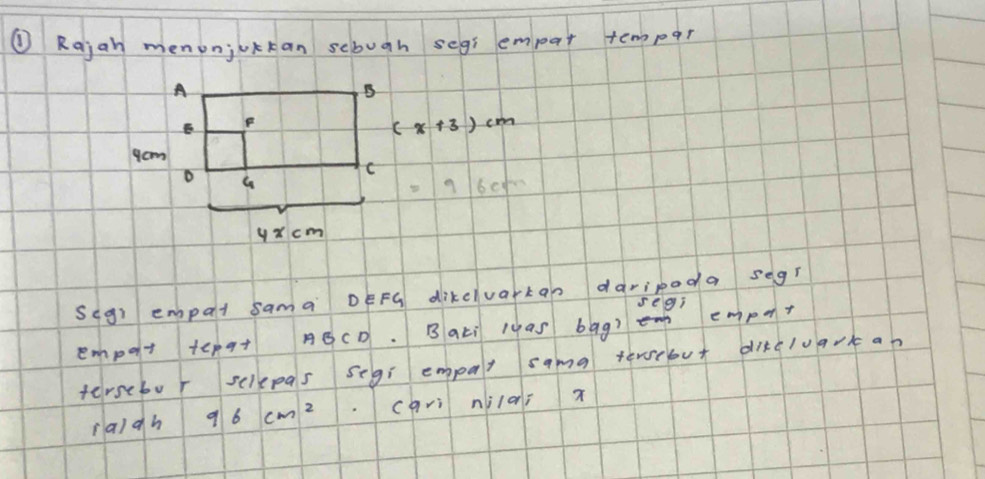 ① Rajah menunjukkan sebuah segi empat tempat
A B
E F (x+3) cm
4cm
D G C
= 96cm
4x cm
Segi empat sama DEFG dikeluarkan daripada segi
segi
empat tepat ABCD. Baki luas bagi empat
tersebut selepas segi empat sama tersebut dikeluarkan
ialah 96 cm². Cari nilai x